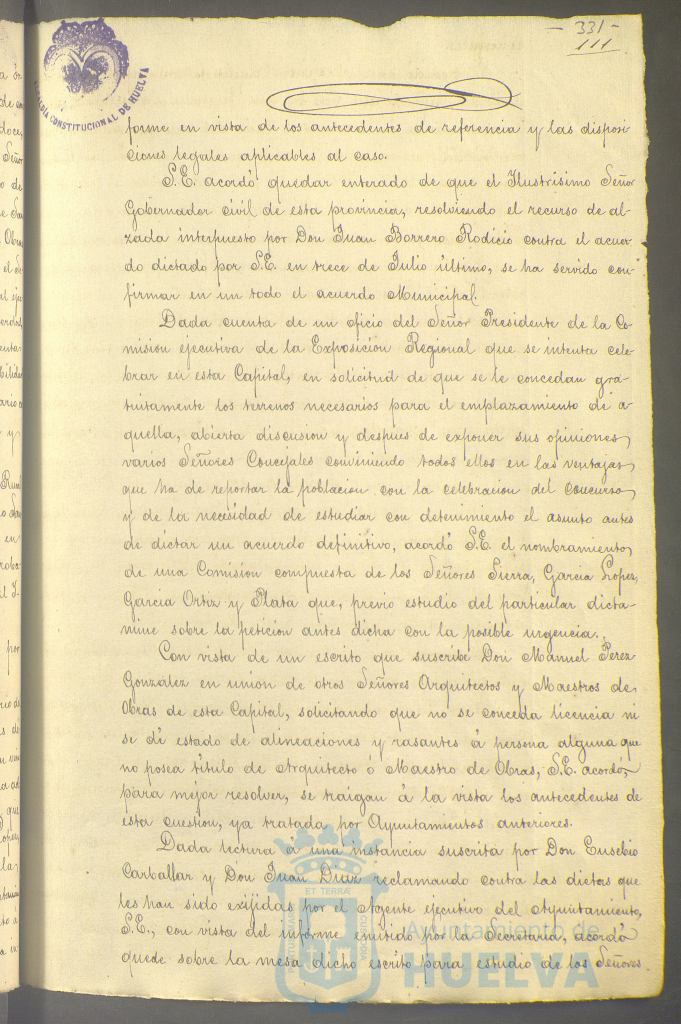 - 331 -
111
ALCALDIA CONSTITUCIONAL DE HUELVA
forme en vista de los antecedentes de referencia y las disposi-
ciones legales aplicables al caso.
S.E. acordó quedar enterado de que el Ilustrisimo Señor
Gobernador civil de esta provincia, resolviendo el recurso de al-
zada interpuesto por Don Juan Borrero Rodicio contra el acuer-
do dictado por S.E. en trece de Julio último, se ha servido con-
firmar en un todo el acuerdo Municipal.
Dada cuenta de un oficio del Señor Presidente de la Co-
mision ejecutiva de la Exposición Regional que se intenta cele-
brar en esta Capital, en solicitud de que se le concedan gra-
tuitamente los terrenos necesarios para el emplazamiento de a-
quella, abierta discusion y despues de exponer sus opiniones
varios Señores Concejales conviniendo todos ellos en las ventajas
que ha de reportar la poblacion con la celebracion del concurso
y de la necesidad de estudiar con detenimiento el asunto antes
de dictar un acuerdo definitivo, acordó S.E. el nombramiento
de una Comision compuesta de los Señores Sierra, Garcia Lopez,
Garcia Ortiz y Plata que, previo estudio del particular dicta-
mine sobre la peticion antes dicha con la posible urgencia.
Con vista de un escrito que suscribe Don Manuel Perez
Gonzalez en union de otros Señores Arquitectos y Maestros de
Obras de esta Capital, solicitando que no se conceda licencia ni
se dé estado de alineaciones y rasantes á persona alguna que
no posea título de Arquitecto ó Maestro de Obras, S.E. acordó,
para mejor resolver, se traigan á la vista los antecedentes de
esta cuestion, ya tratada por Ayuntamientos anteriores.
Dada lectura á una instancia suscrita por Don Eusebio
Carballar y Don Juan Diaz reclamando contra las dietas que
les han sido exijidas por el Agente ejecutivo del Ayuntamiento,
S.E., con vista del informe emitido por la Secretaria, acordó
quede sobre la mesa dicho escrito para estudio de los Señores
Ayuntamiento de
HUELVA